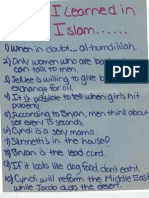 I Learned in
Islam......
1) When in doubt... al-humdillilah.
2) Only women who are bas
can talk to men.
3) SeUve is willing to give b
exchange for oil.
4) It is possible to tell when girls hit
puberty
5) According to Bryan, men think about
sex every 15 seconds.
6) Cyndi is a sexy mama.
7) Slumerti's in the house?
8) Bryan is the lead curd.
9) If it looks like dog food, don't eat it!
10) Cyndi will reform the Middle East
while Jacob dusts the desert.